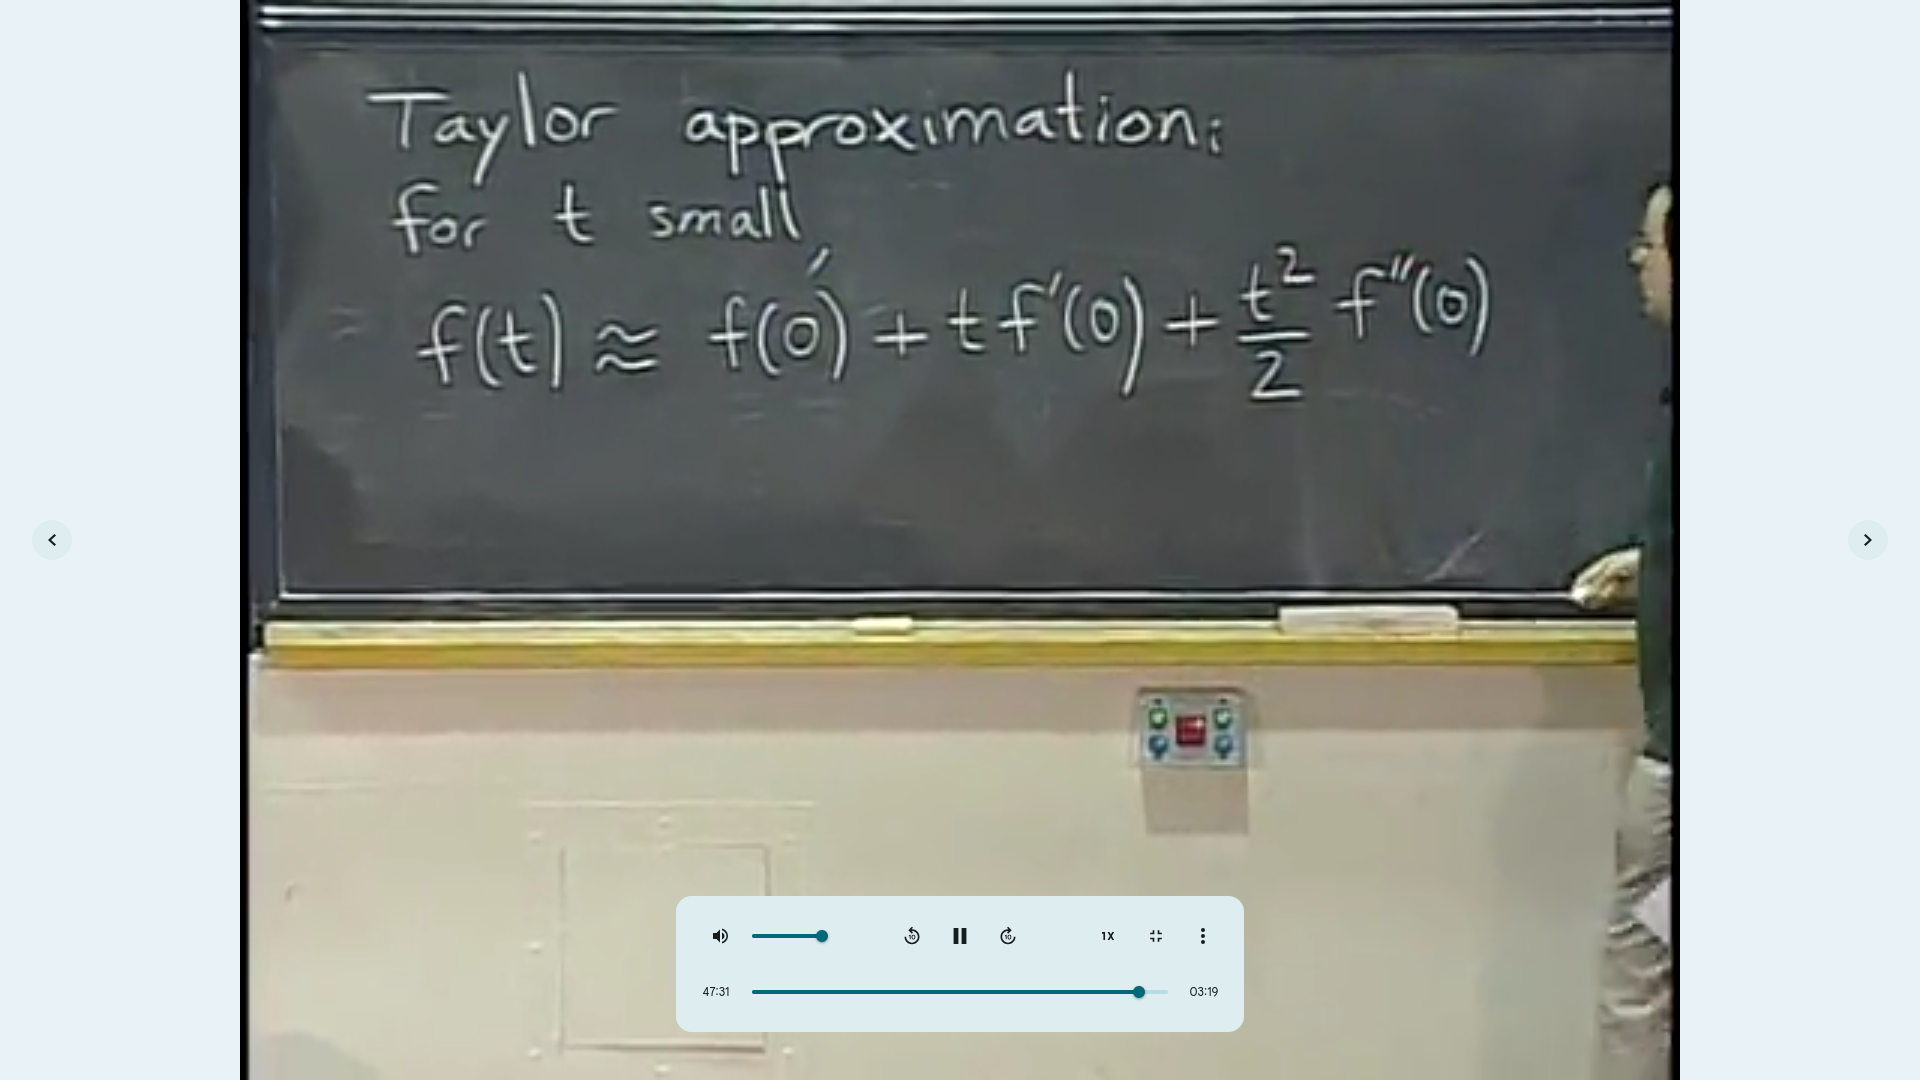 Taylor approximation:
for t small,
f(t) ≈ f(0) + t f'(0) + t²/2 f''(0)
10
10
1X
47:31
03:19